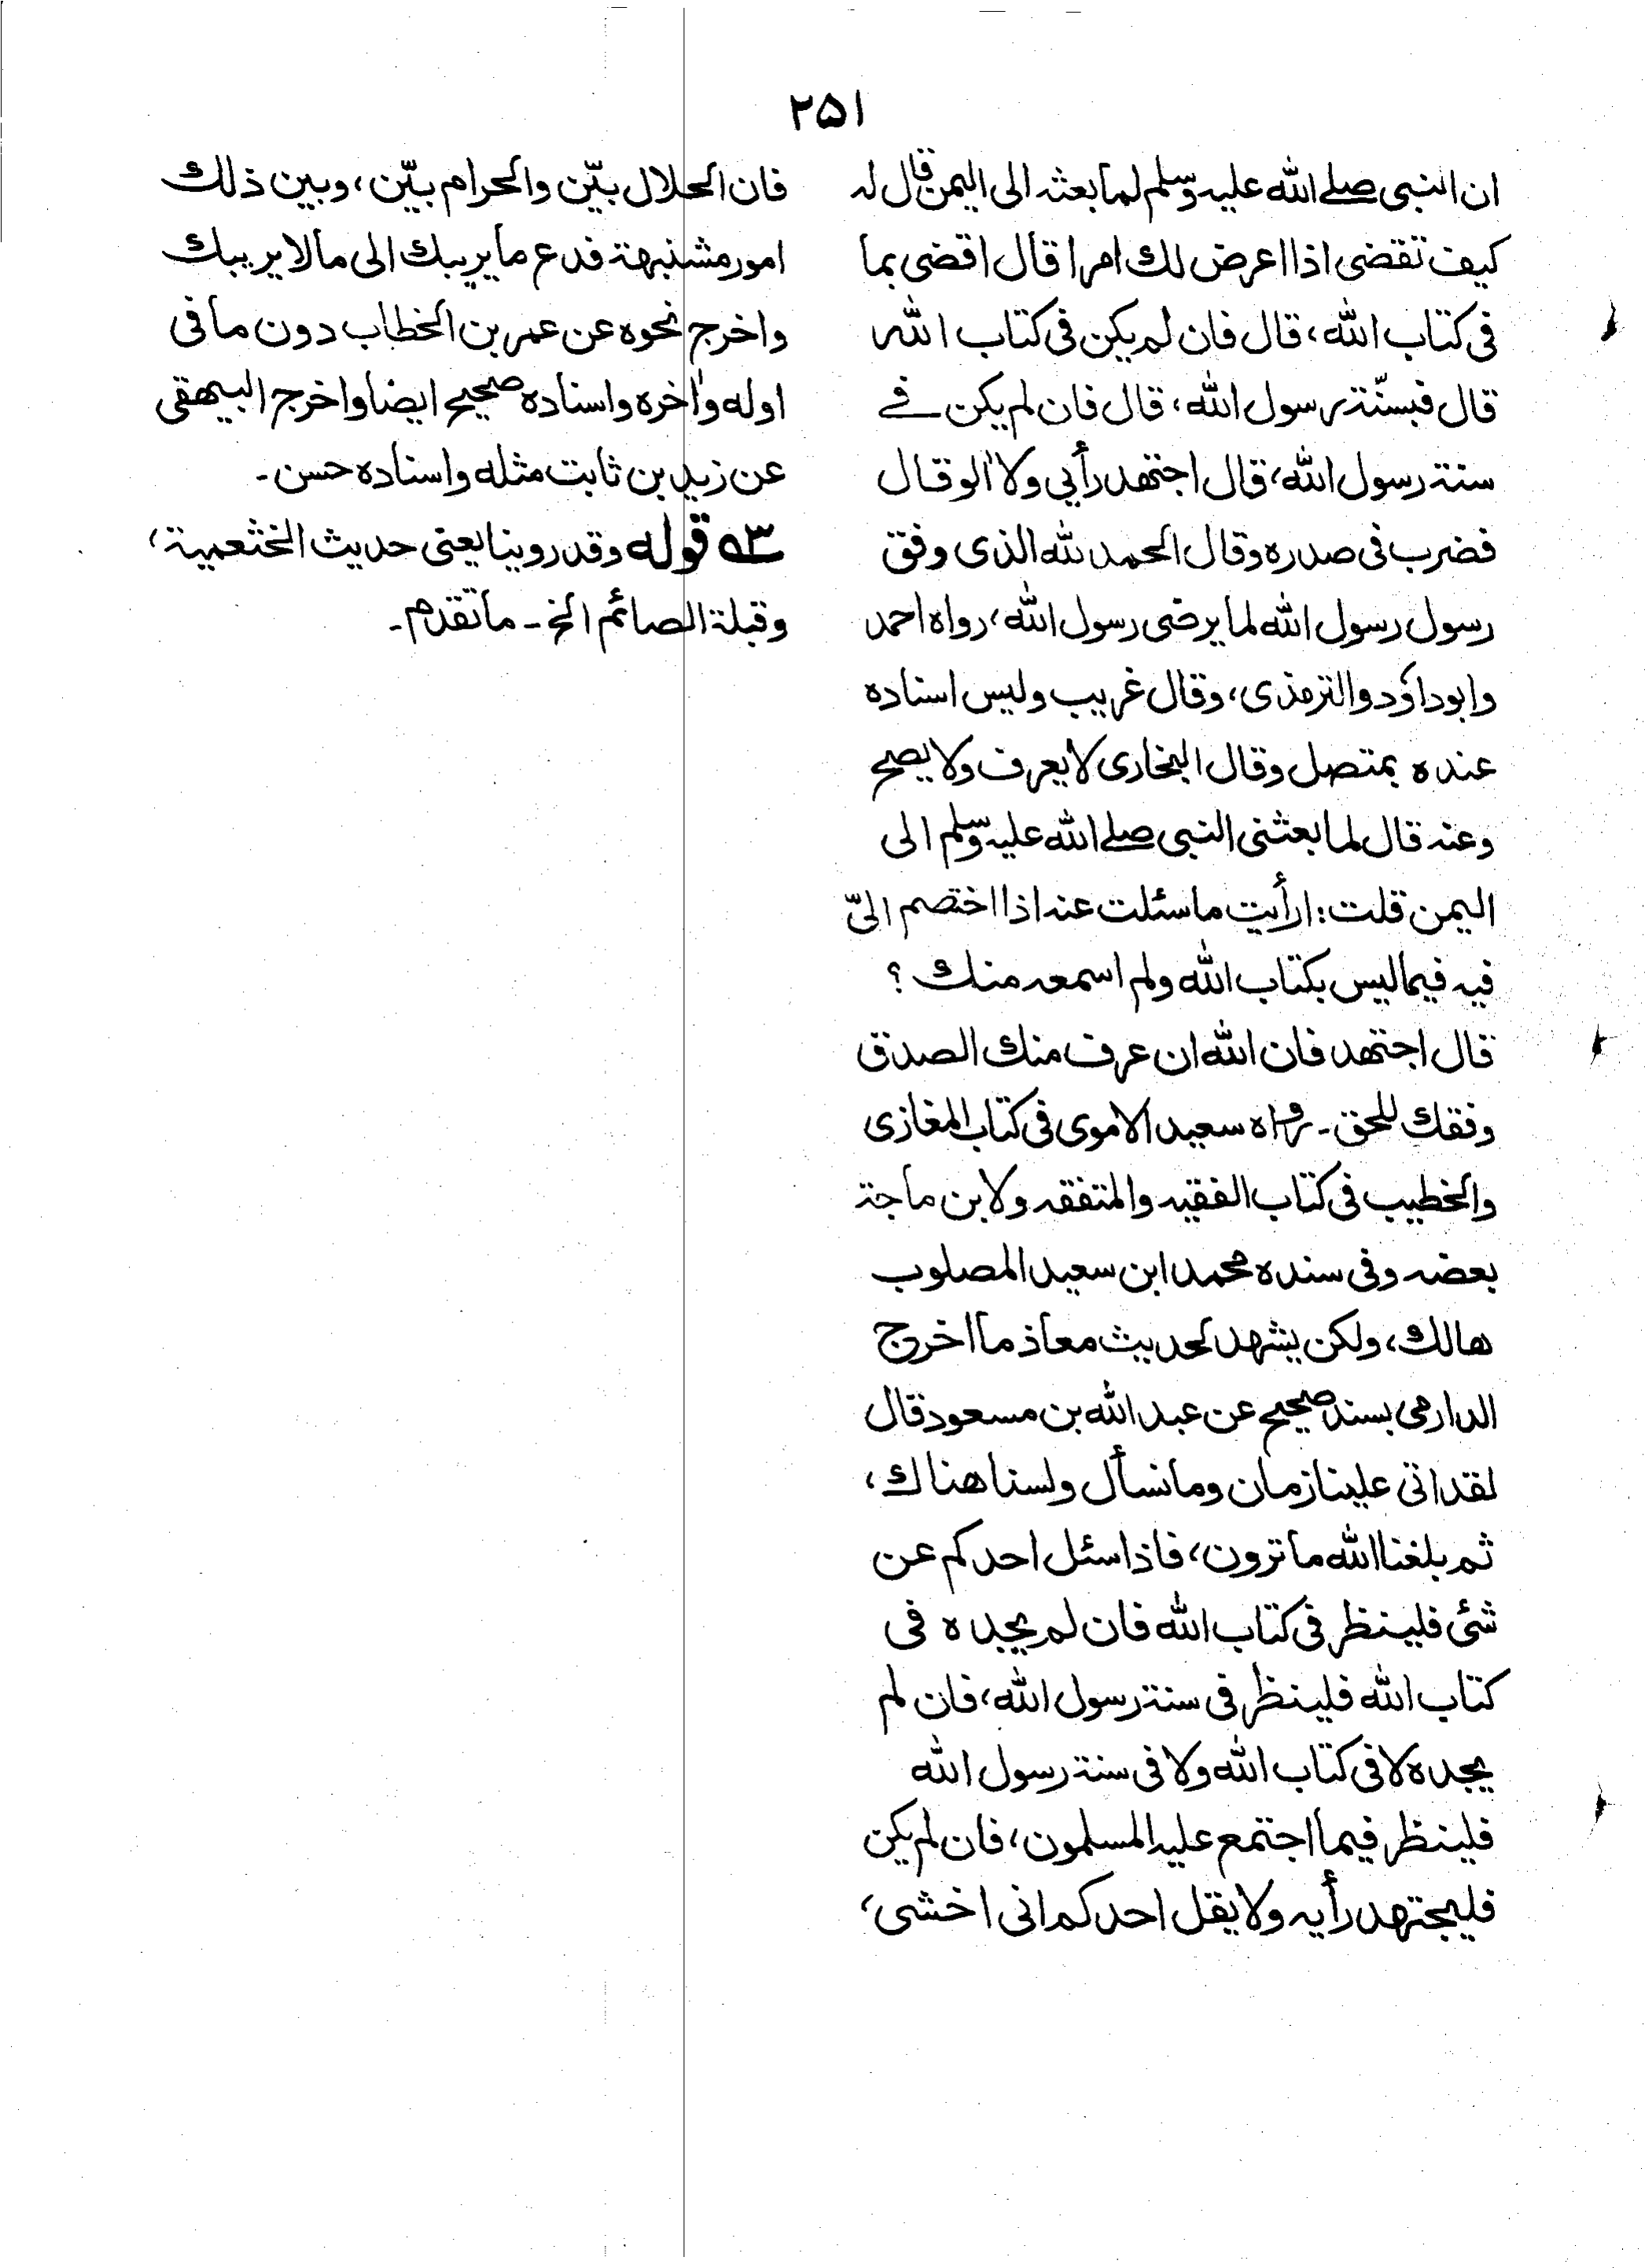 ۲۵۱
ان النبی صلے الله علیہ وسلم لما بعثہ الی الیمن قال لہ
کیف تقضی اذا اعرض لك امرا قال اقضی بما
فی کتاب الله، قال فان لم یکن فی کتاب الله
قال فبسنّة رسول الله، قال فان لم یکن فے
سنة رسول الله، قال اجتهد رأیی ولا اٰلو قال
فضرب فی صدره وقال الحمد لله الذی وفق
رسول رسول الله لما یرضی رسول الله، رواه احمد
وابوداؤد والترمذی، وقال غریب ولیس اسناده
عنده بمتصل وقال البخاری لا یعرف ولا یصح
وعنہ قال لما بعثنی النبی صلے الله علیہ وسلم الی
الیمن قلت: ارأیت ما سئلت عنہ اذا اختصم الیّ
فیہ فیما لیس بکتاب الله ولم اسمعہ منك ؟
قال اجتهد فان الله ان عرف منك الصدق
وفقك للحق۔ رواه سعید الاموی فی کتاب المغازی
والخطیب فی کتاب الفقیہ والمتفقہ ولابن ماجة
بعضہ وفی سنده محمد ابن سعید المصلوب
هالك، ولکن یشهد لحدیث معاذ ما اخرج
الدارمی بسند صحیح عن عبد الله بن مسعود قال
لقد اتی علینا زمان وما نسأل ولسنا هناك،
ثم بلغنا الله ما ترون، فاذا سئل احدکم عن
شئی فلینظر فی کتاب الله فان لم یجده فی
کتاب الله فلینظر فی سنة رسول الله، فان لم
یجده لا فی کتاب الله ولا فی سنة رسول الله
فلینظر فیما اجتمع علیہ المسلمون، فان لم یکن
فلیجتهد رأیہ ولا یقل احدکم انی اخشی،
فان الحلال بیّن والحرام بیّن، وبین ذلك
امور مشتبهة فدع ما یریبك الی ما لا یریبك
واخرج نحوه عن عمر بن الخطاب دون ما فی
اوله واٰخره واسناده صحیح ایضا واخرج البیهقی
عن زید بن ثابت مثله واسناده حسن۔
۵۳ قوله وقد روینا یعنی حدیث الخثعمیة،
وقبلة الصائم الخ۔ ما تقدم۔